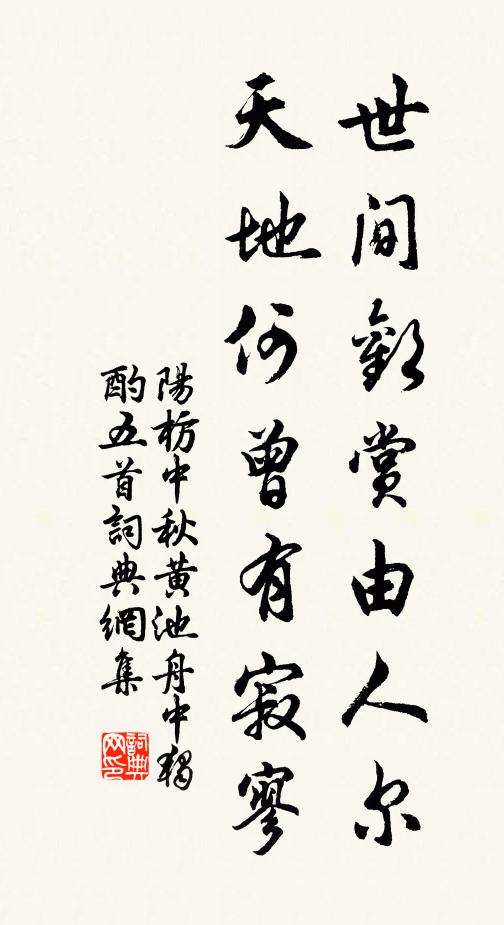 世间観赏由人尔
天地何曾有寂寥
陽枋中秋黄池舟中獨
酌五首詞典網集
詞典网印